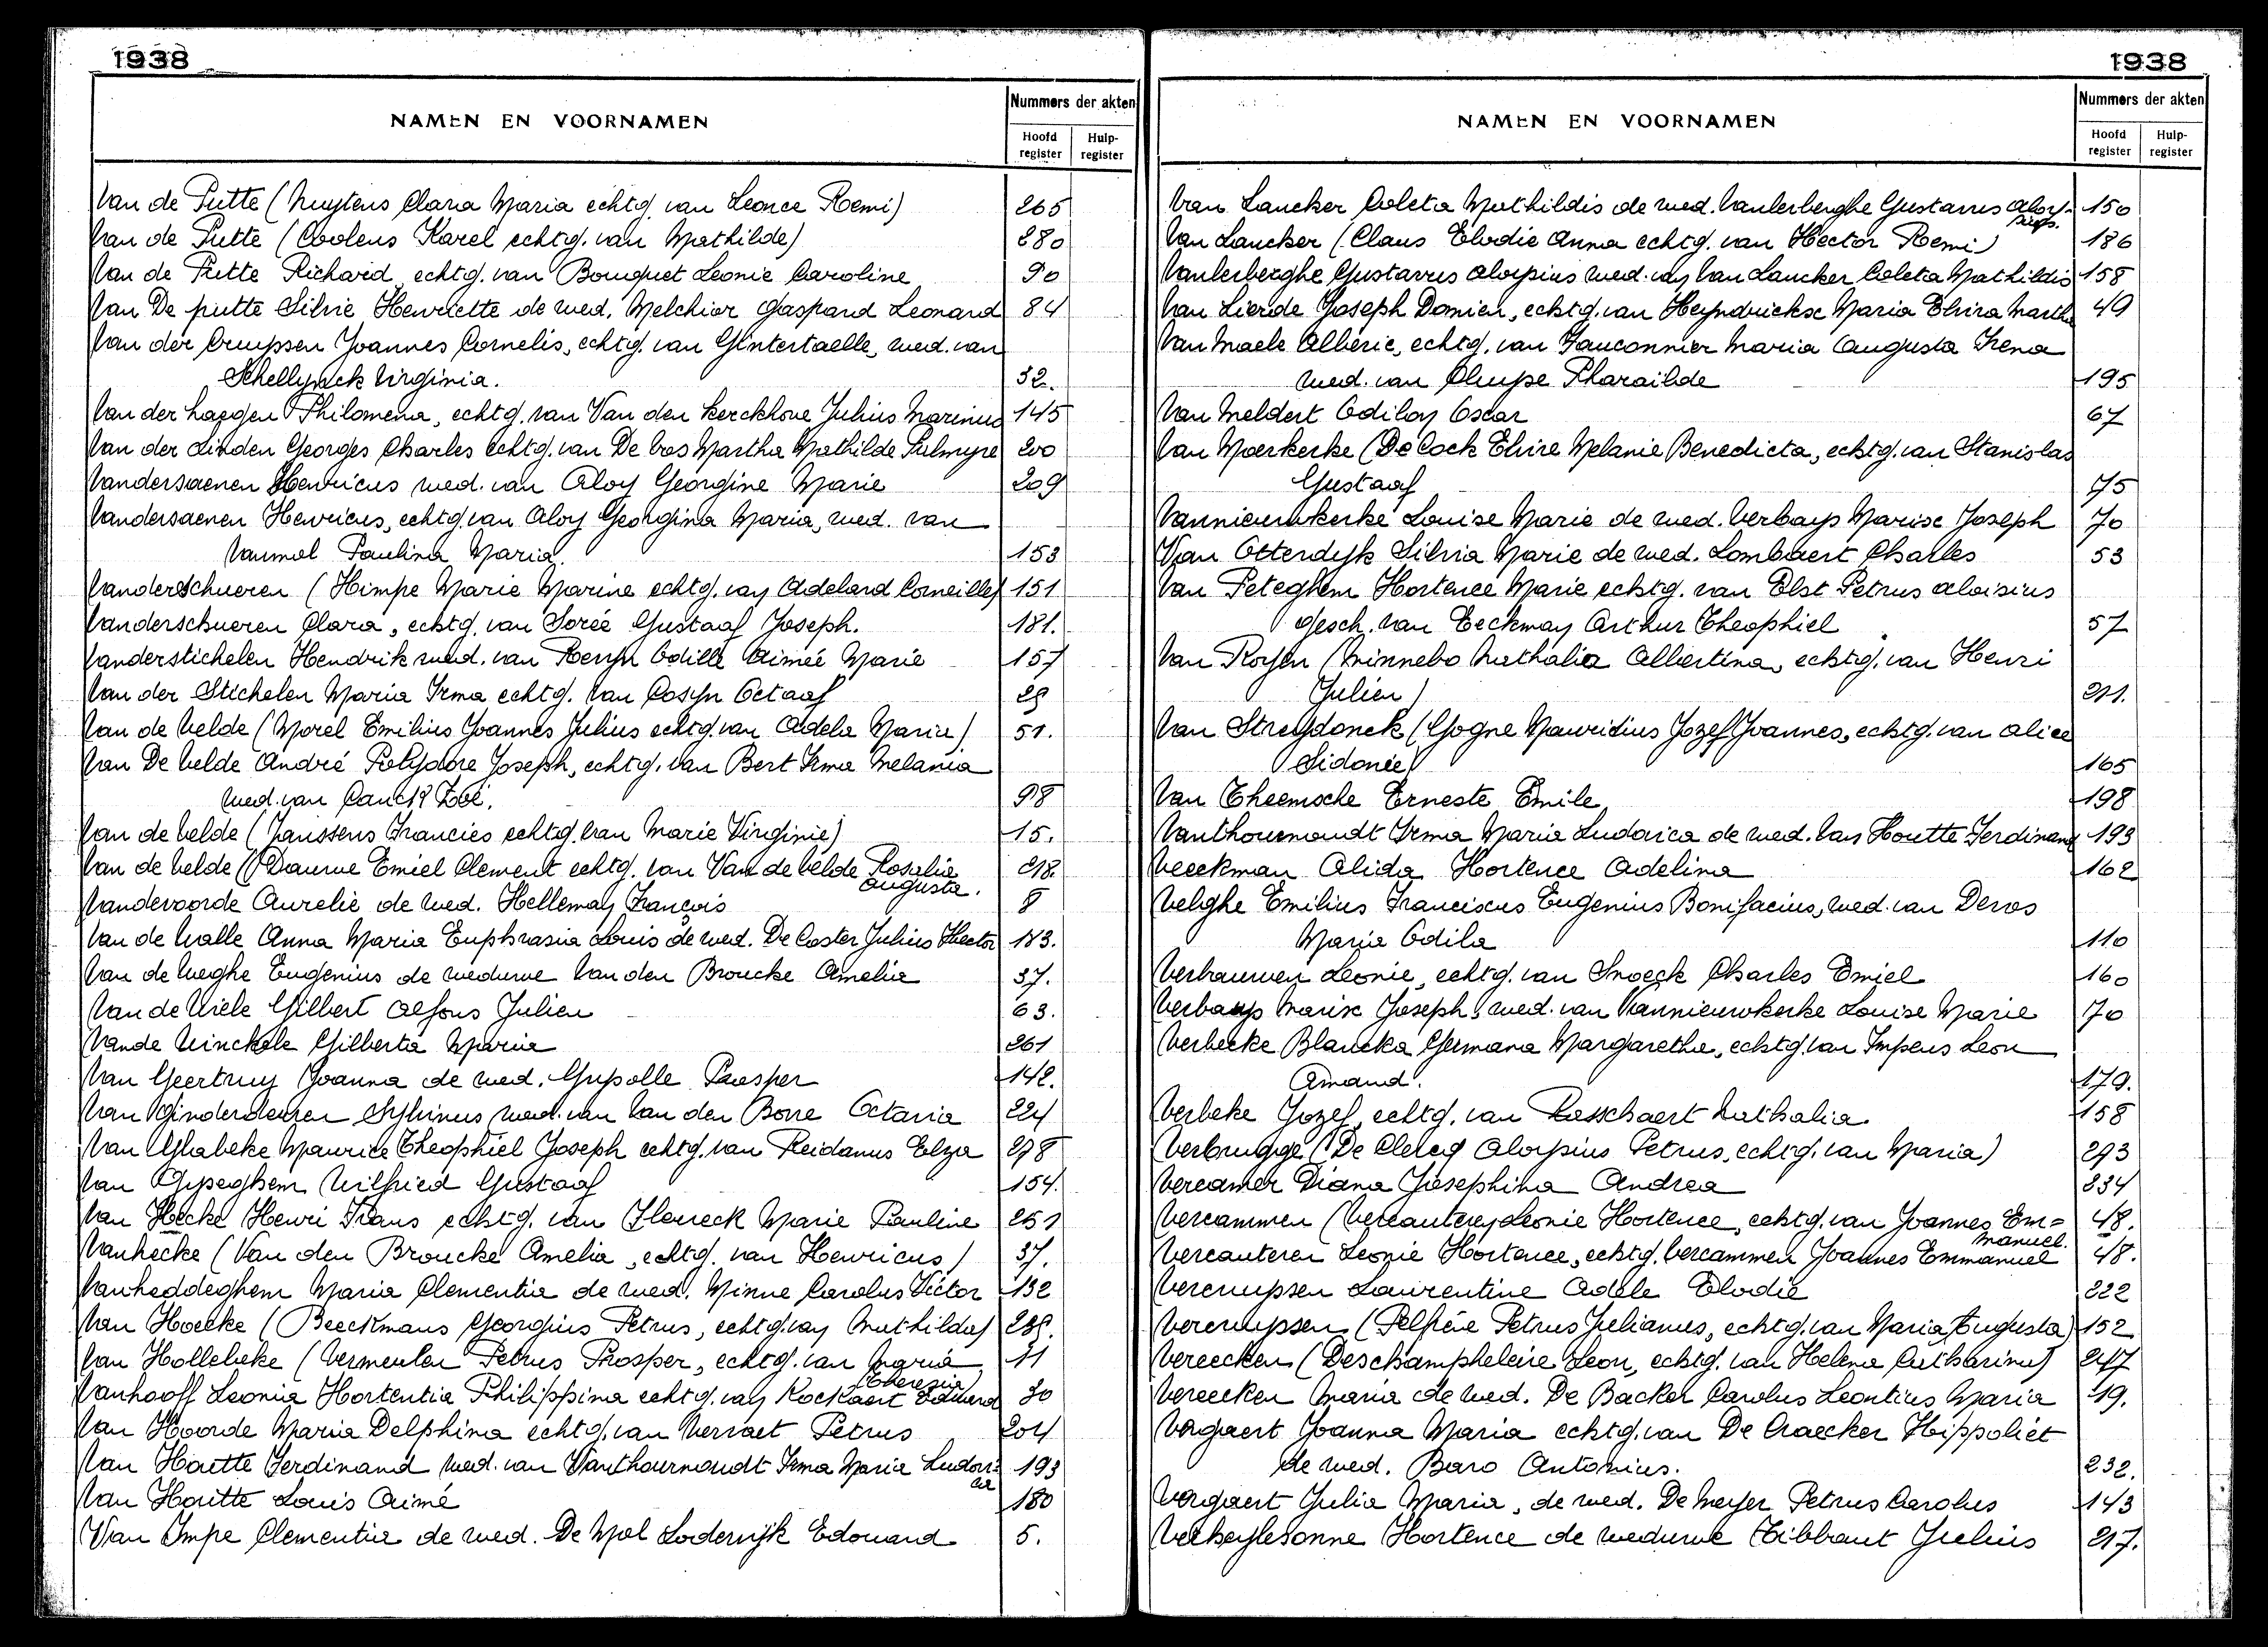 1938
NAMEN EN VOORNAMEN
Nummers der akten
Hoofd register
Hulp-register
Van de Putte (Nuytens Clara Maria echtg. van Leonce Remi) 265
Van de Putte (Coolens Karel echtg. van Mathilde) 280
Van de Putte Richard echtg. van Bouquet Leonie Caroline 90
Van De putte Silvie Henriette de wed. Melchior Gaspard Leonard 84
Van der Cruyssen Joannes Cornelis, echtg. van Gintertaelle, wed. van
Schellynck Virginia. 32.
Van der haegen Philomena, echtg. van Van den Kerckhove Julius Marinus 145
Van der Linden Georges Charles echtg. van De Vos Martha Mathilde Palmyre 200
Vandersaenen Henricus wed. van Aloy Georgine Marie 209
Vandersaenen Henricus, echtg. van Aloy Georgina Maria, wed. van
Vanmol Paulina Maria. 153
Vanderschueren (Himpe Marie Marine echtg. van Adelard Corneille) 151
Vanderschueren Clara, echtg. van Sorée Gustaaf Joseph. 181.
Vanderstichelen Hendrik wed. van Odille Aimée Marie 157
Van der Stichelen Maria Irma echtg. van Cosyn Octaaf 29
Van de Velde (Morel Emilius Joannes Julius echtg. van Adela Maria) 51.
Van De Velde André Polydore Joseph, echtg. van Bert Irma Melania
wed. van Canck? Zoé. 98
Van de Velde (Janssens Francies echtg. van Marie Virginie) 15.
Van de Velde (Dauwe Emiel Clement echtg. van Van de Velde Rosalia Augusta. 218.
Vandevoorde Aurelie de wed. Helleman François 8
Van de Walle Anna Maria Euphrasia Louis de wed. De Coster Julius Hector 183.
Van de Weghe Eugenius de weduwe Van den Broucke Amelia 37.
Van de Wiele Gilbert Alfons Julien 63.
Vande Winckele Gilberta Maria 261
Van Geertruy Joanna de wed. Gyselle Prosper 142.
Van Ginderdeuren Sylvinus wed. van Van den Bosse Octavia 224
Van Glabeke Maurice Theophiel Joseph echtg. van Reidanus Elza 278
Van Gyseghem Wilfried Gustaaf 154.
Van Hecke Henri Frans echtg. van Marie Pauline 251
Vanhecke (Van den Broucke Amelia, echtg. van Henricus) 37.
Vanheddeghem Maria Clementia de wed. Minne Carolus Victor 132
Van Hoecke (Beeckmans Georgius Petrus, echtg. van Mathilda) 289.
Van Hollebeke (Vermeulen Petrus Prosper, echtg. van Maria Theresia 11
Vanhooff Leonia Hortentia Philippina echtg. van Kockaert Edward 30
Van Hoorde Maria Delphina echtg. van Vervaet Petrus 204
Van Houtte Ferdinand wed. van Vanthournoudt Irma Maria Ludovica 193
Van Houtte Louis Aimé 180
Van Impe Clementia de wed. De Mol Lodewijk Edouard 5.
1938
NAMEN EN VOORNAMEN
Nummers der akten
Hoofd register
Hulp-register
Van Lancker Coleta Mathildis de wed. Vanlerberghe Gustavus Aloysius. 150
Van Lancker (Claus Elodie Anna echtg. van Hector Remi) 186
Vanlerberghe Gustavus Aloysius wed. van Van Lancker Coleta Mathildis 158
Van Lierde Joseph Domien, echtg. van Heyndrickse Maria Elvira Martha 49
Van Maele Alberic, echtg. van Fauconnier Maria Augusta Irena
wed. van Cluyse Pharailde 195
Van Meldert Odilon Oscar 67
Van Moerkerke (De Cock Elvire Melanie Benedicta, echtg. van Stanislas
Gustaaf 75
Vannieuwkerke Louise Marie de wed. Verbays Marise Joseph 70
Van Otterdyk Silvia Marie de wed. Lombaert Charles 53
Van Peteghem Hortence Marie echtg. van Elst Petrus Aloisius
gesch. van Eeckman Arthur Theophiel 57
Van Royen (Minnebo Nathalia Albertina, echtg. van Henri
Julien) 211.
Van Streydonck (Gogne Mauritius Jozef Joannes, echtg. van Alice
Sidonie) 165
Van Theemsche Erneste Emile 198
Vanthournoudt Irma Maria Ludovica de wed. Van Houtte Ferdinand 193
Veeckman Alida Hortence Adelina 162
Velghe Emilius Franciscus Eugenius Bonifacius, wed. van Devos
Maria Odila 110
Verhauwen Leonie, echtg. van Snoeck Charles Emiel 160
Verbays Marise Joseph, wed. van Vannieuwkerke Louise Marie 70
Verbeeke Blancka Germana Margaretha, echtg. van Impens Leon
Amand. 179.
Verbeke Jozef, echtg. van Rasschaert Nathalia 158
Verbrugge (De Clercq Aloysius Petrus, echtg. van Maria) 293
Vercamer Diana Josephina Andrea 234
Vercammen (Vercauteren Leonie Hortence, echtg. van Joannes Emmanuel. 48.
Vercauteren Leonie Hortence, echtg. Vercammen Joannes Emmanuel 48.
Vercruyssen Laurentine Adele Elodie 222
Vercruyssen (Pelfrène Petrus Julianus, echtg. van Maria Augusta) 152
Vereecken (Deschampheleire Leon, echtg. van Helena Catharina) 247
Vereecken Maria de wed. De Backer Carolus Leontius Maria 19.
Vergaert Joanna Maria echtg. van De Craecker Hippoliet
de wed. Baro Antonius. 232.
Vergaert Julia Maria, de wed. De Meyer Petrus Carolus 143
Verheylesonne Hortence de weduwe Tibbaut Julius 217.